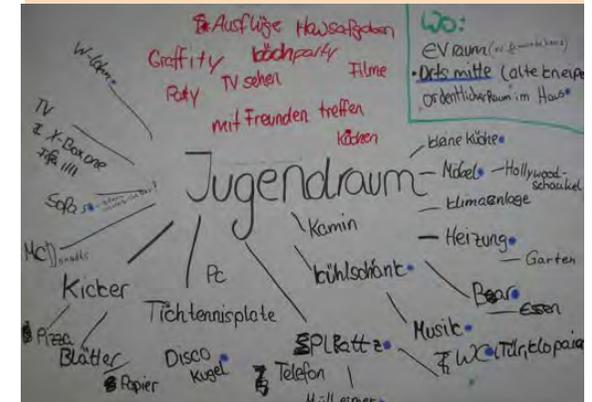 Ausflüge Hausaufgaben
Graffity kochparty
Filme
Party TV sehen
mit Freunden treffen
kochen
Wo:
ev raum
Ortsmitte (alte kneipe
ordentlicher Raum im Haus
Jugendraum
W-lahn
TV
X-Box one
Fifa
Sofa
MC Donalds
Kicker
Pizza
Blätter
Papier
Pc
Tichtennisplate
Disco
Kugel
Kamin
kühlschank
PLBattz
Telefon
Mülleimer
kleine Küche
Möbel Hollywood-
schaukel
klimaanlage
Heizung
Garten
Bar
Essen
Musik
WC (Tür, klopa